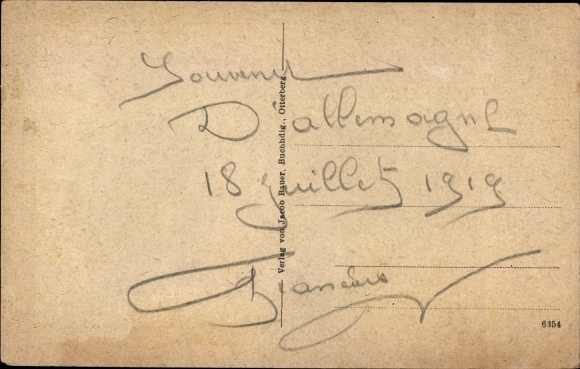 Souvenir
D'allemagne
18 juillet 1919
Verlag von Jacob Bauer, Buchhdlg., Otterberg
6354